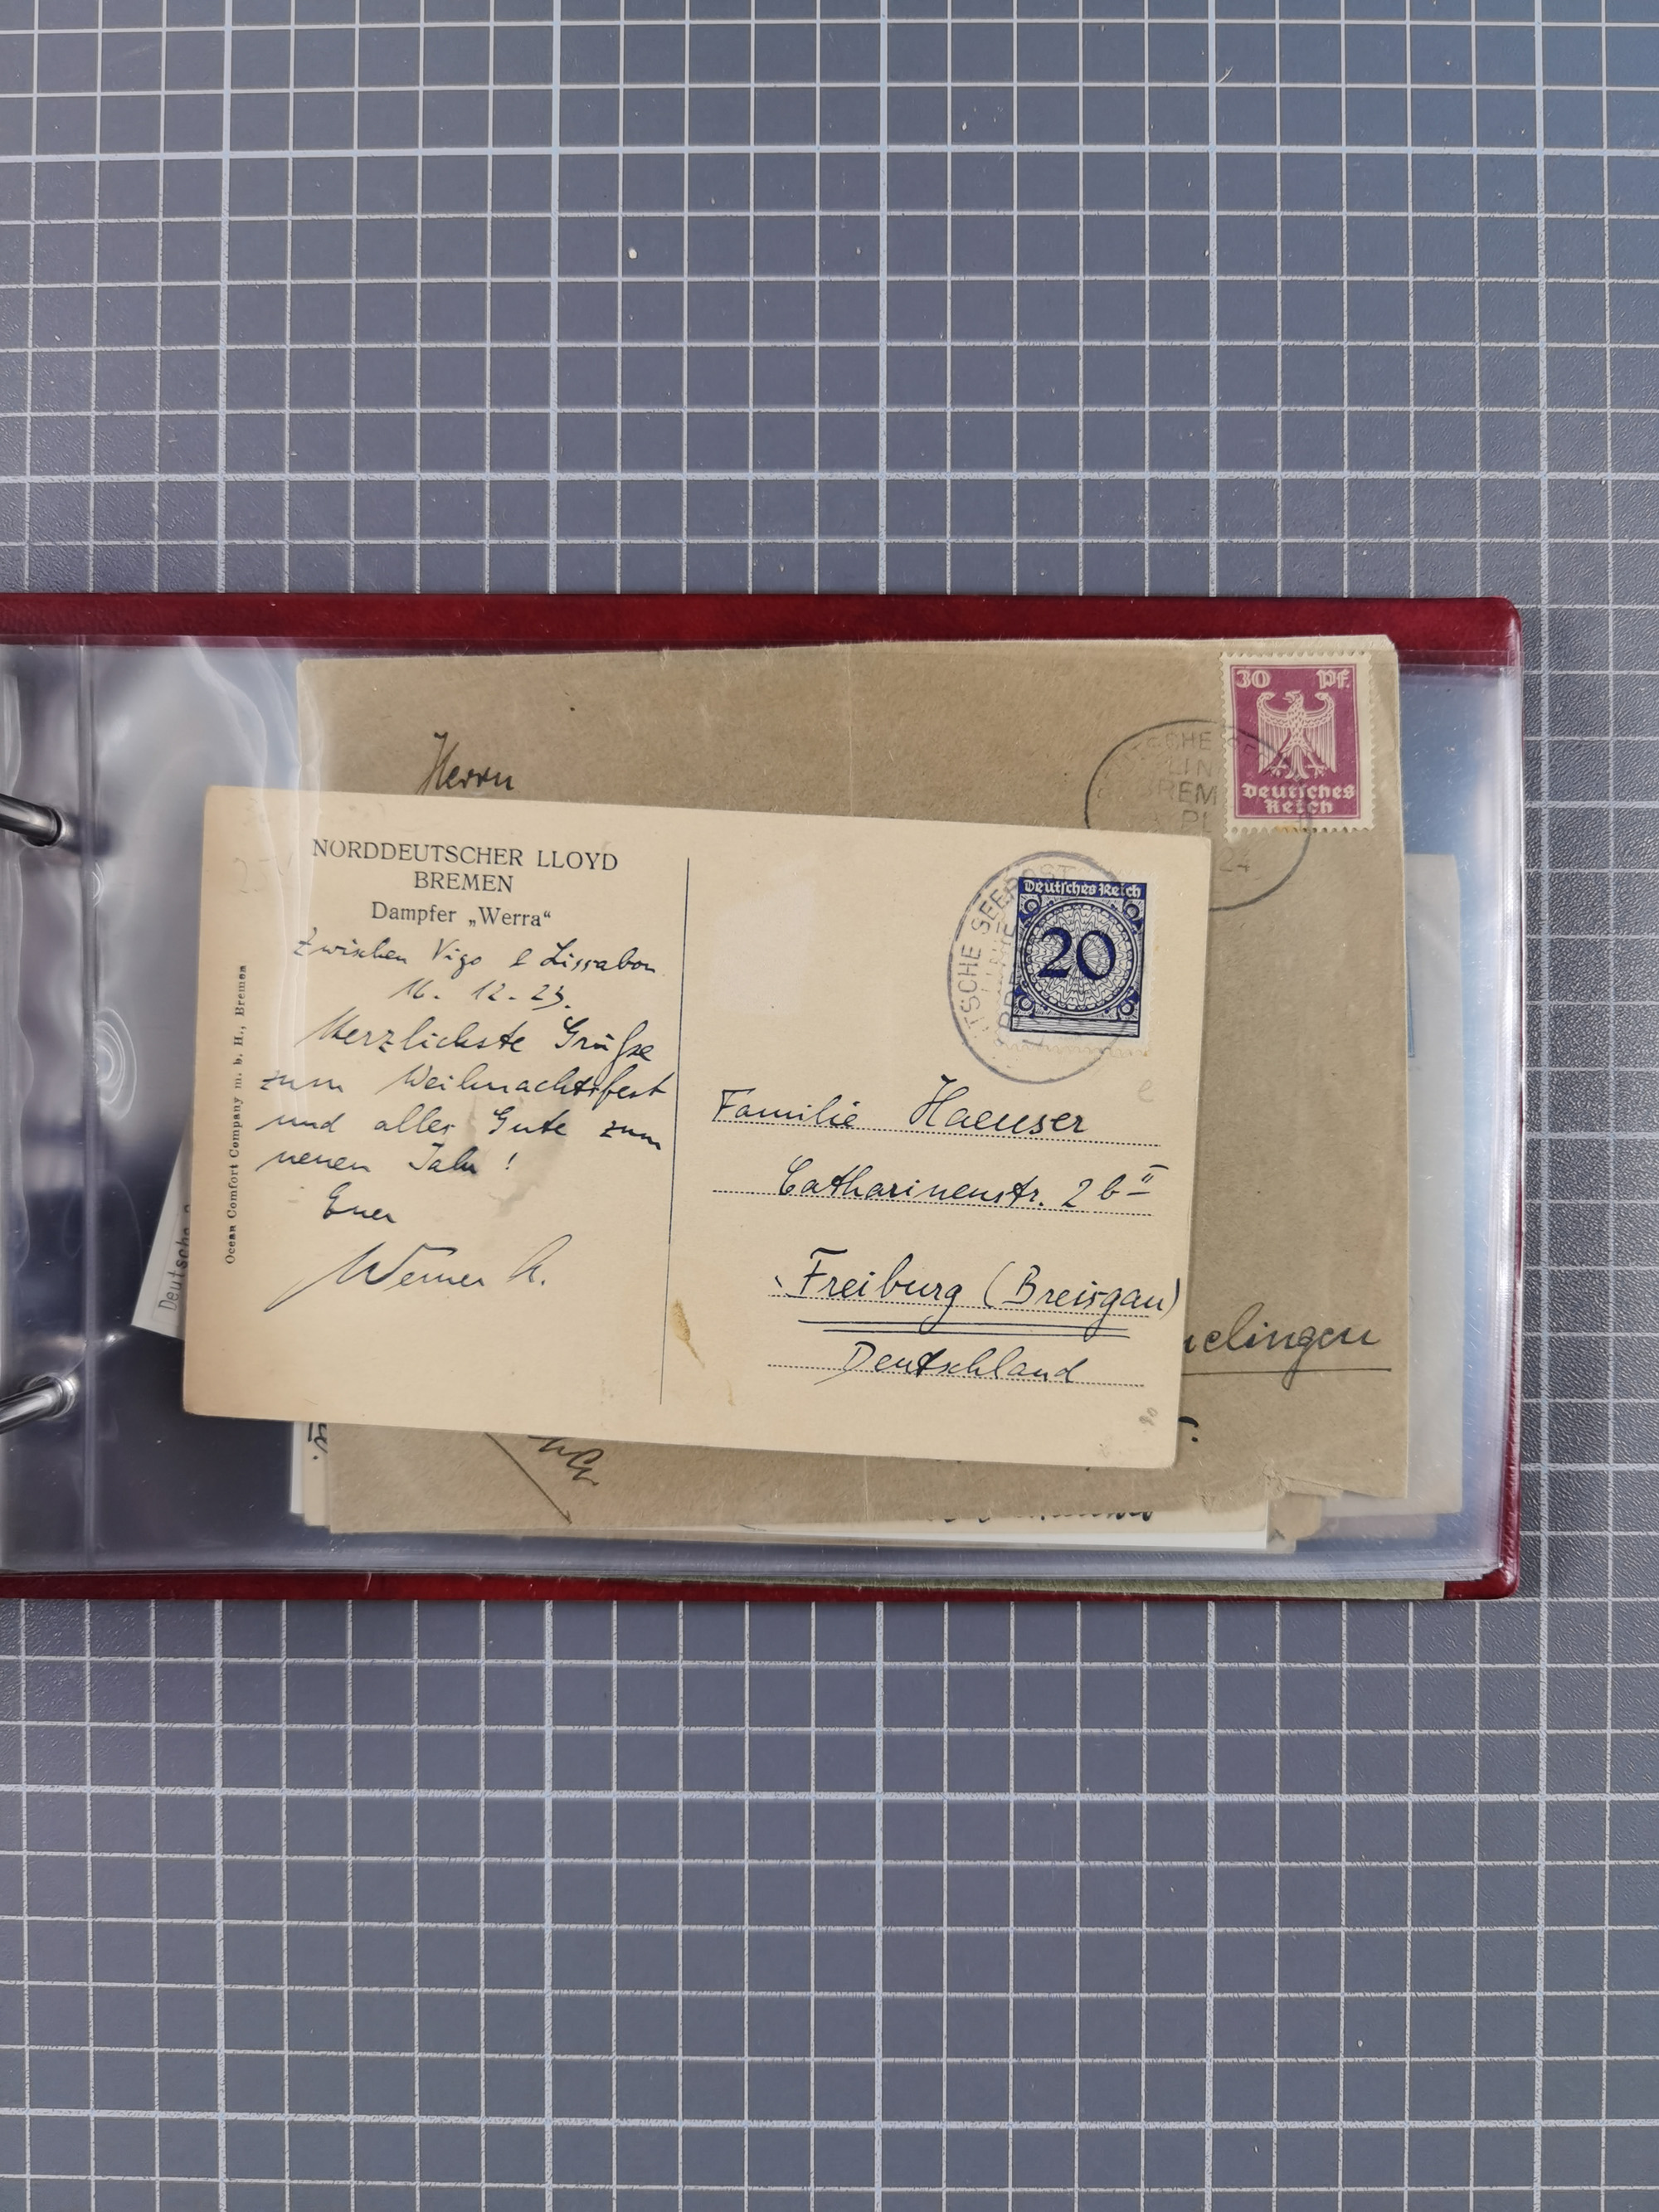 30 Pf.
Deutsches
Reich
REM
24
Herrn
NORDDEUTSCHER LLOYD
BREMEN
Dampfer „Werra“
Zwischen Vigo & Lissabon
16. 12. 23.
Herzlichste Grüße
zum Weihnachtsfest
und alles Gute zum
neuen Jahr!
Euer
Werner H.
Ocean Comfort Company m. b. H., Bremen
Deutsches Reich
20
TSCHE SEEPOST
Familie Haeuser
Catharinenstr. 2 b II
Freiburg (Breisgau)
Deutschland
elingen
Deutsche